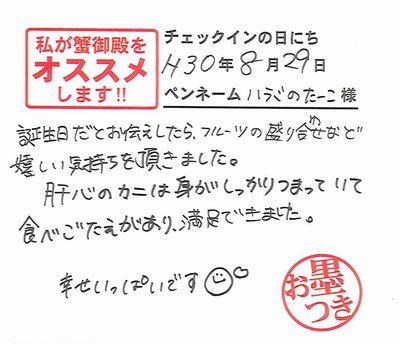 私が蟹御殿を
オススメ
します!!
チェックインの日にち
H30年8月29日
ペンネーム ハラジのたーこ様
誕生日だとお伝えしたら、フルーツの盛り合わせなど
嬉しい気持ちを頂きました。
肝心のカニは身がしっかりつまっていて
食べごたえがあり、満足できました。
幸せいっぱいです
お墨つき